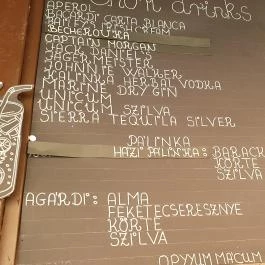 Short drinks
APEROL
BACARDI CARTA BLANCA
BAILEYS IRISH CREAM
BECHEROVKA
CAPTAIN MORGAN
JACK DANIEL'S
JÄGERMEISTER
JOHNNIE WALKER
KALINKA HERBAL VODKA
MARINE DRY GIN
UNICUM
UNICUM SZILVA
SIERRA TEQUILA SILVER
PÁLINKA
HÁZI PÁLINKA: BARACK
KÖRTE
SZILVA
AGÁRDI: ALMA
FEKETECSERESZNYE
KÖRTE
SZILVA